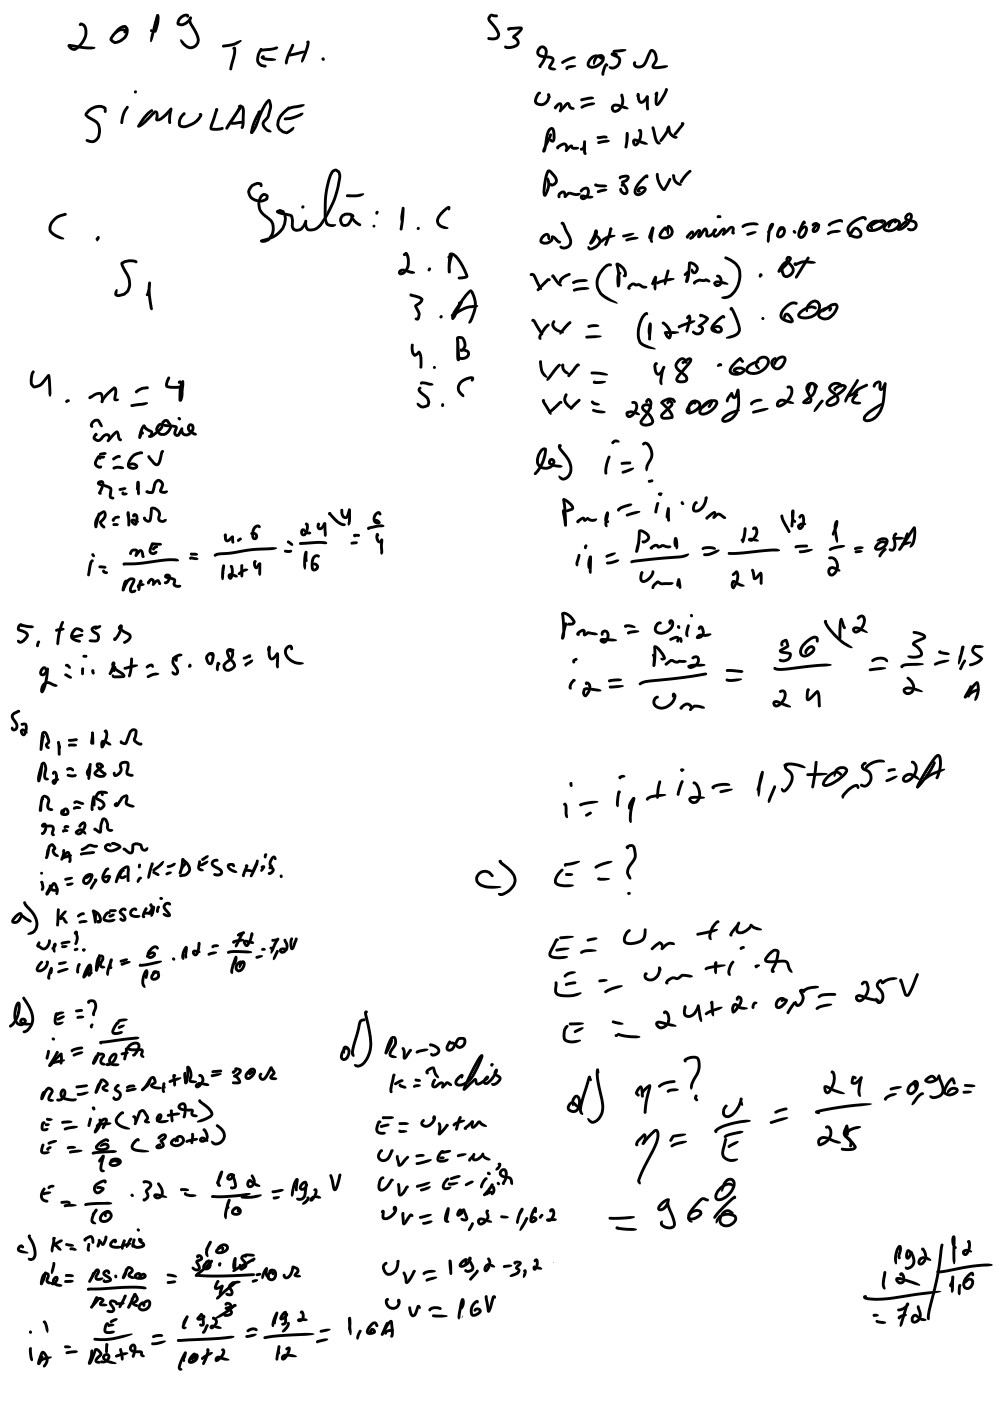 2019 TEH.
SIMULARE
C. Grilă: 1. C
2. D
3. A
4. B
5. C
S1
4. n = 4
în serie
E = 6V
r = 1Ω
R = 12Ω
i = nE/R+nr = 4·6/12+4 = 24/16 \4 = 6/4
5. t
q = i·Δt = 5·0,8 = 4C
S2
R1 = 12Ω
R2 = 18Ω
R0 = 15Ω
r = 2Ω
RA = 0Ω
iA = 0,6A; K = DESCHIS.
a) K = DESCHIS
U1 = ?
U1 = iAR1 = 6/10 · 12 = 72/10 = 7,2V
b) E = ?
iA = E/Re+r
Re = RS = R1+R2 = 30Ω
E = iA(Re+r)
E = 6/10 (30+2)
E = 6/10 · 32 = 192/10 = 19,2 V
c) K = ÎNCHIS
R'e = RS·R0/RS+R0 = 30·15/45 = 10Ω
10
3
i'A = E/R'e+r = 19,2/10+2 = 19,2/12 = 1,6A
d) RV→∞
K = închis
E = UV+u
UV = E-u
UV = E-i'A·r
UV = 19,2-1,6·2
UV = 19,2-3,2
UV = 16V
S3
r = 0,5Ω
Un = 24V
Pn1 = 12W
Pn2 = 36W
a) Δt = 10 min = 10·60 = 600s
W = (Pn1+Pn2)·Δt
W = (12+36)·600
W = 48·600
W = 28800J = 28,8KJ
b) i = ?
Pn1 = i1·Un
i1 = Pn1/Un1 = 12/24 \12 = 1/2 = 0,5A
Pn2 = Un·i2
i2 = Pn2/Un = 36/24 \12 = 3/2 = 1,5 A
i = i1+i2 = 1,5+0,5 = 2A
c) E = ?
E = Un+u
E = Un+i·r
E = 24+2·0,5 = 25V
d) η = ?
η = U/E = 24/25 = 0,96 =
= 96%
192 | 12
12 | 1,6
= 72